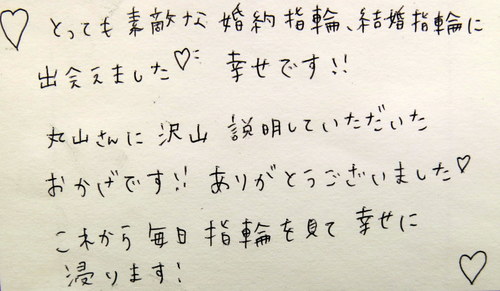 ♡ とっても素敵な婚約指輪、結婚指輪に
出会えました♡ 幸せです!!
丸山さんに沢山説明していただいた
おかげです!! ありがとうございました♡
これから毎日指輪を見て幸せに
浸ります! ♡